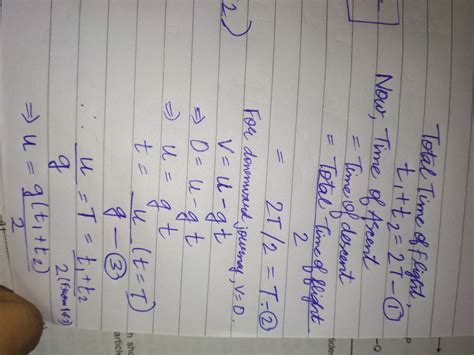 Total Time of flight,
t₁ + t₂ = 2T - ①
Now, Time of Ascent
= Time of descent
= Total Time of flight
2
= 2T/2 = T - ②
For downward journey, V = 0.
V = u - gt
⇒ 0 = u - gt
⇒ u = gt
t = u (t = T)
g - ③
∴ u = T = t₁ + t₂
g 2
⇒ u = g(t₁ + t₂)
2
2)